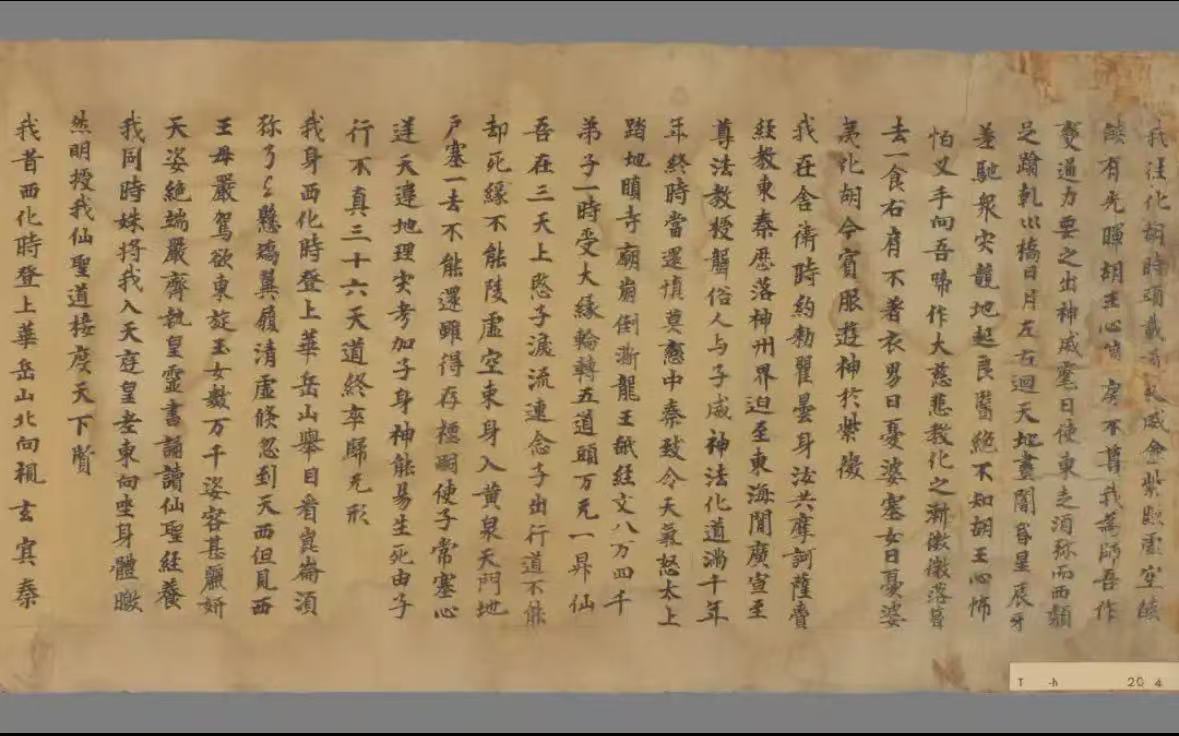 我往化胡時頭戴通天威金紫照虛空焰
焰有光暉胡王心懭戾不尊我為師吾作
變通力要之出神威麾日使東走須弥而西頹
足蹹乹川橋日月左右迴天地晝闇昏星辰牙
差馳衆灾競地起良醫絶不知胡王心怖
怕叉手向吾啼作大慈悲教化之漸微微落簪
去一食右肩不著衣男曰憂婆塞女曰憂婆
夷化胡今賓服遊神於紫微
我在舍衛時約勑瞿曇身汝共摩訶薩賷
經教東秦歷落神州界迫至東海間廣宣至
尊法教授聾俗人与子威神法化道滿千年
年終時當還慎莫戀中秦致令天氣怒太上
蹹地瞋寺廟崩倒澌龍王舐經文八万四千
弟子一時受大緣輪轉五道頭万无一昇仙
吾在三天上愍子淚流連念子出行道不能
却死緣不能陵虛空束身入黄泉天門地
戶塞一去不能還雖得存種嗣使子常塞心
逆天違地理灾考加子身神能易生死由子
行不真三十六天道終卒歸无形
我身西化時登上華岳山舉目看崑崙須
弥了了懸矯翼嶺清虛倏忽到天西但見西
王母嚴駕欲東旋玉女數万千姿容甚麗姸
天姿絶端嚴齊執皇靈書誦讀仙聖經養
我同時姝將我入天庭皇老東向坐身體曒
然明授我仙聖道接度天下賢
我昔西化時登上華岳山北向視玄冥秦
T -h 20 4